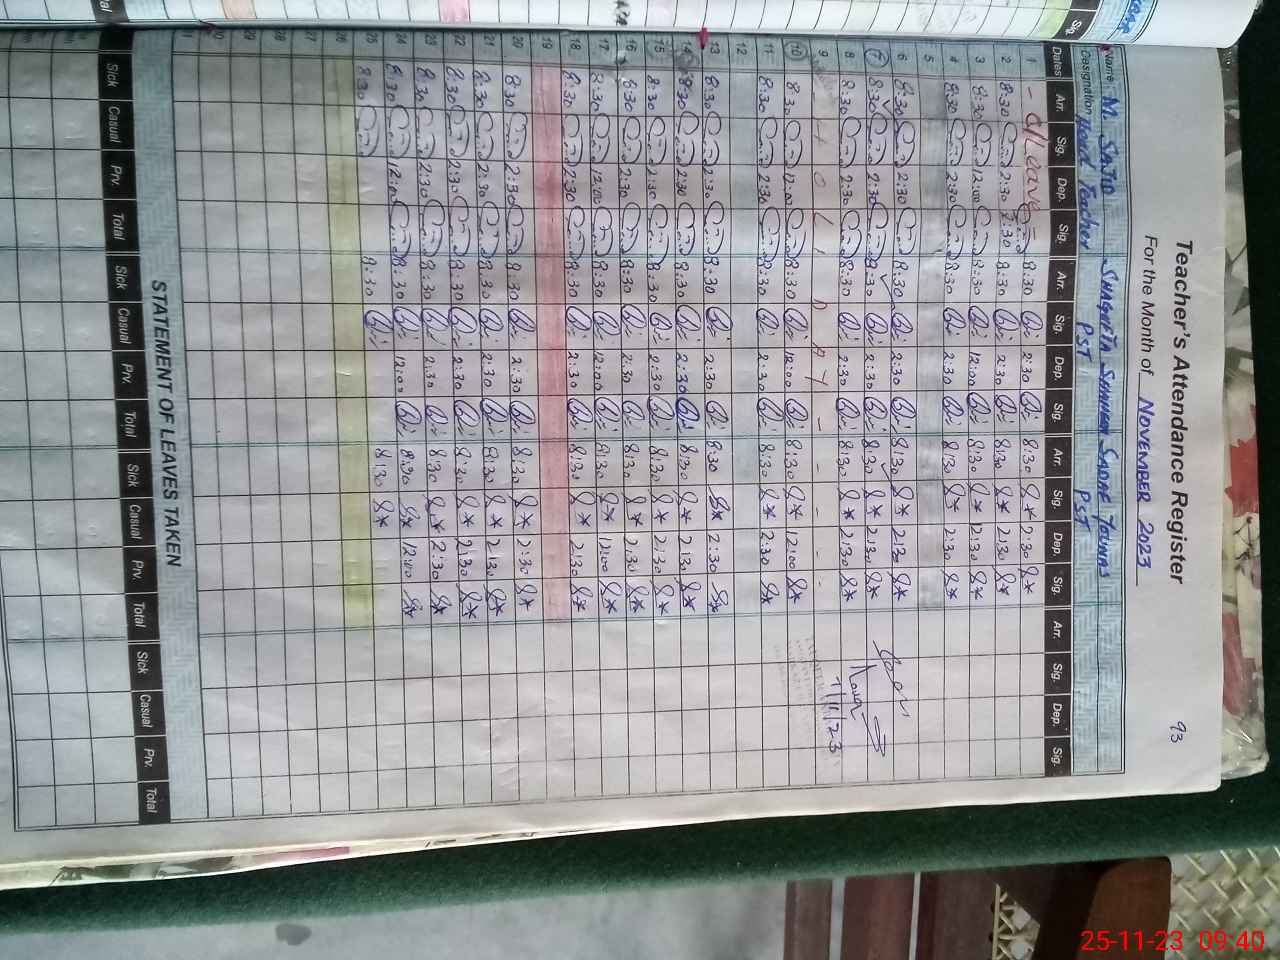 Teacher's Attendance Register
93
For the Month of NOVEMBER 2023
Name: M. SAJID SHAGUFTA SHAHEEN SADAF
Designation Head Teacher PST PST
Dates Arr. Sig. Dep. Sig. Arr. Sig. Dep. Sig. Arr. Sig. Dep. Sig. Arr. Sig. Dep. Sig.
1 - C/Leave - 8:30 2:30 8:30 2:30
2 8:30 2:30 8:30 2:30 8:30 2:30
3 8:30 12:00 8:30 12:00 8:30 12:30
4 8:30 2:30 8:30 2:30 8:30 2:30
5
6 8:30 2:30 8:30 2:30 8:30 2:30
7 8:30 2:30 8:30 2:30 8:30 2:30
8 8:30 2:30 8:30 2:30 8:30 2:30
9 H O L I D A Y - - - - -
10 8:30 12:00 8:30 12:00 8:30 12:00
11 8:30 2:30 8:30 2:30 8:30 2:30
12
13 8:30 2:30 8:30 2:30 8:30 2:30
14 8:30 2:30 8:30 2:30 8:30 2:30
15 8:30 2:30 8:30 2:30 8:30 2:30
16 8:30 2:30 8:30 2:30 8:30 2:30
17 8:30 12:00 8:30 12:00 8:30 12:00
18 8:30 2:30 8:30 2:30 8:30 2:30
19
20 8:30 2:30 8:30 2:30 8:30 2:30
21 8:30 2:30 8:30 2:30 8:30 2:30
22 8:30 2:30 8:30 2:30 8:30 2:30
23 8:30 2:30 8:30 2:30 8:30 2:30
24 8:30 12:00 8:30 12:00 8:30 12:00
25 8:30 8:30 8:30
26
27
28
29
30
31
7/11/23
STATEMENT OF LEAVES TAKEN
Sick Casual Prv. Total Sick Casual Prv. Total Sick Casual Prv. Total Sick Casual Prv. Total
25-11-23 09:40